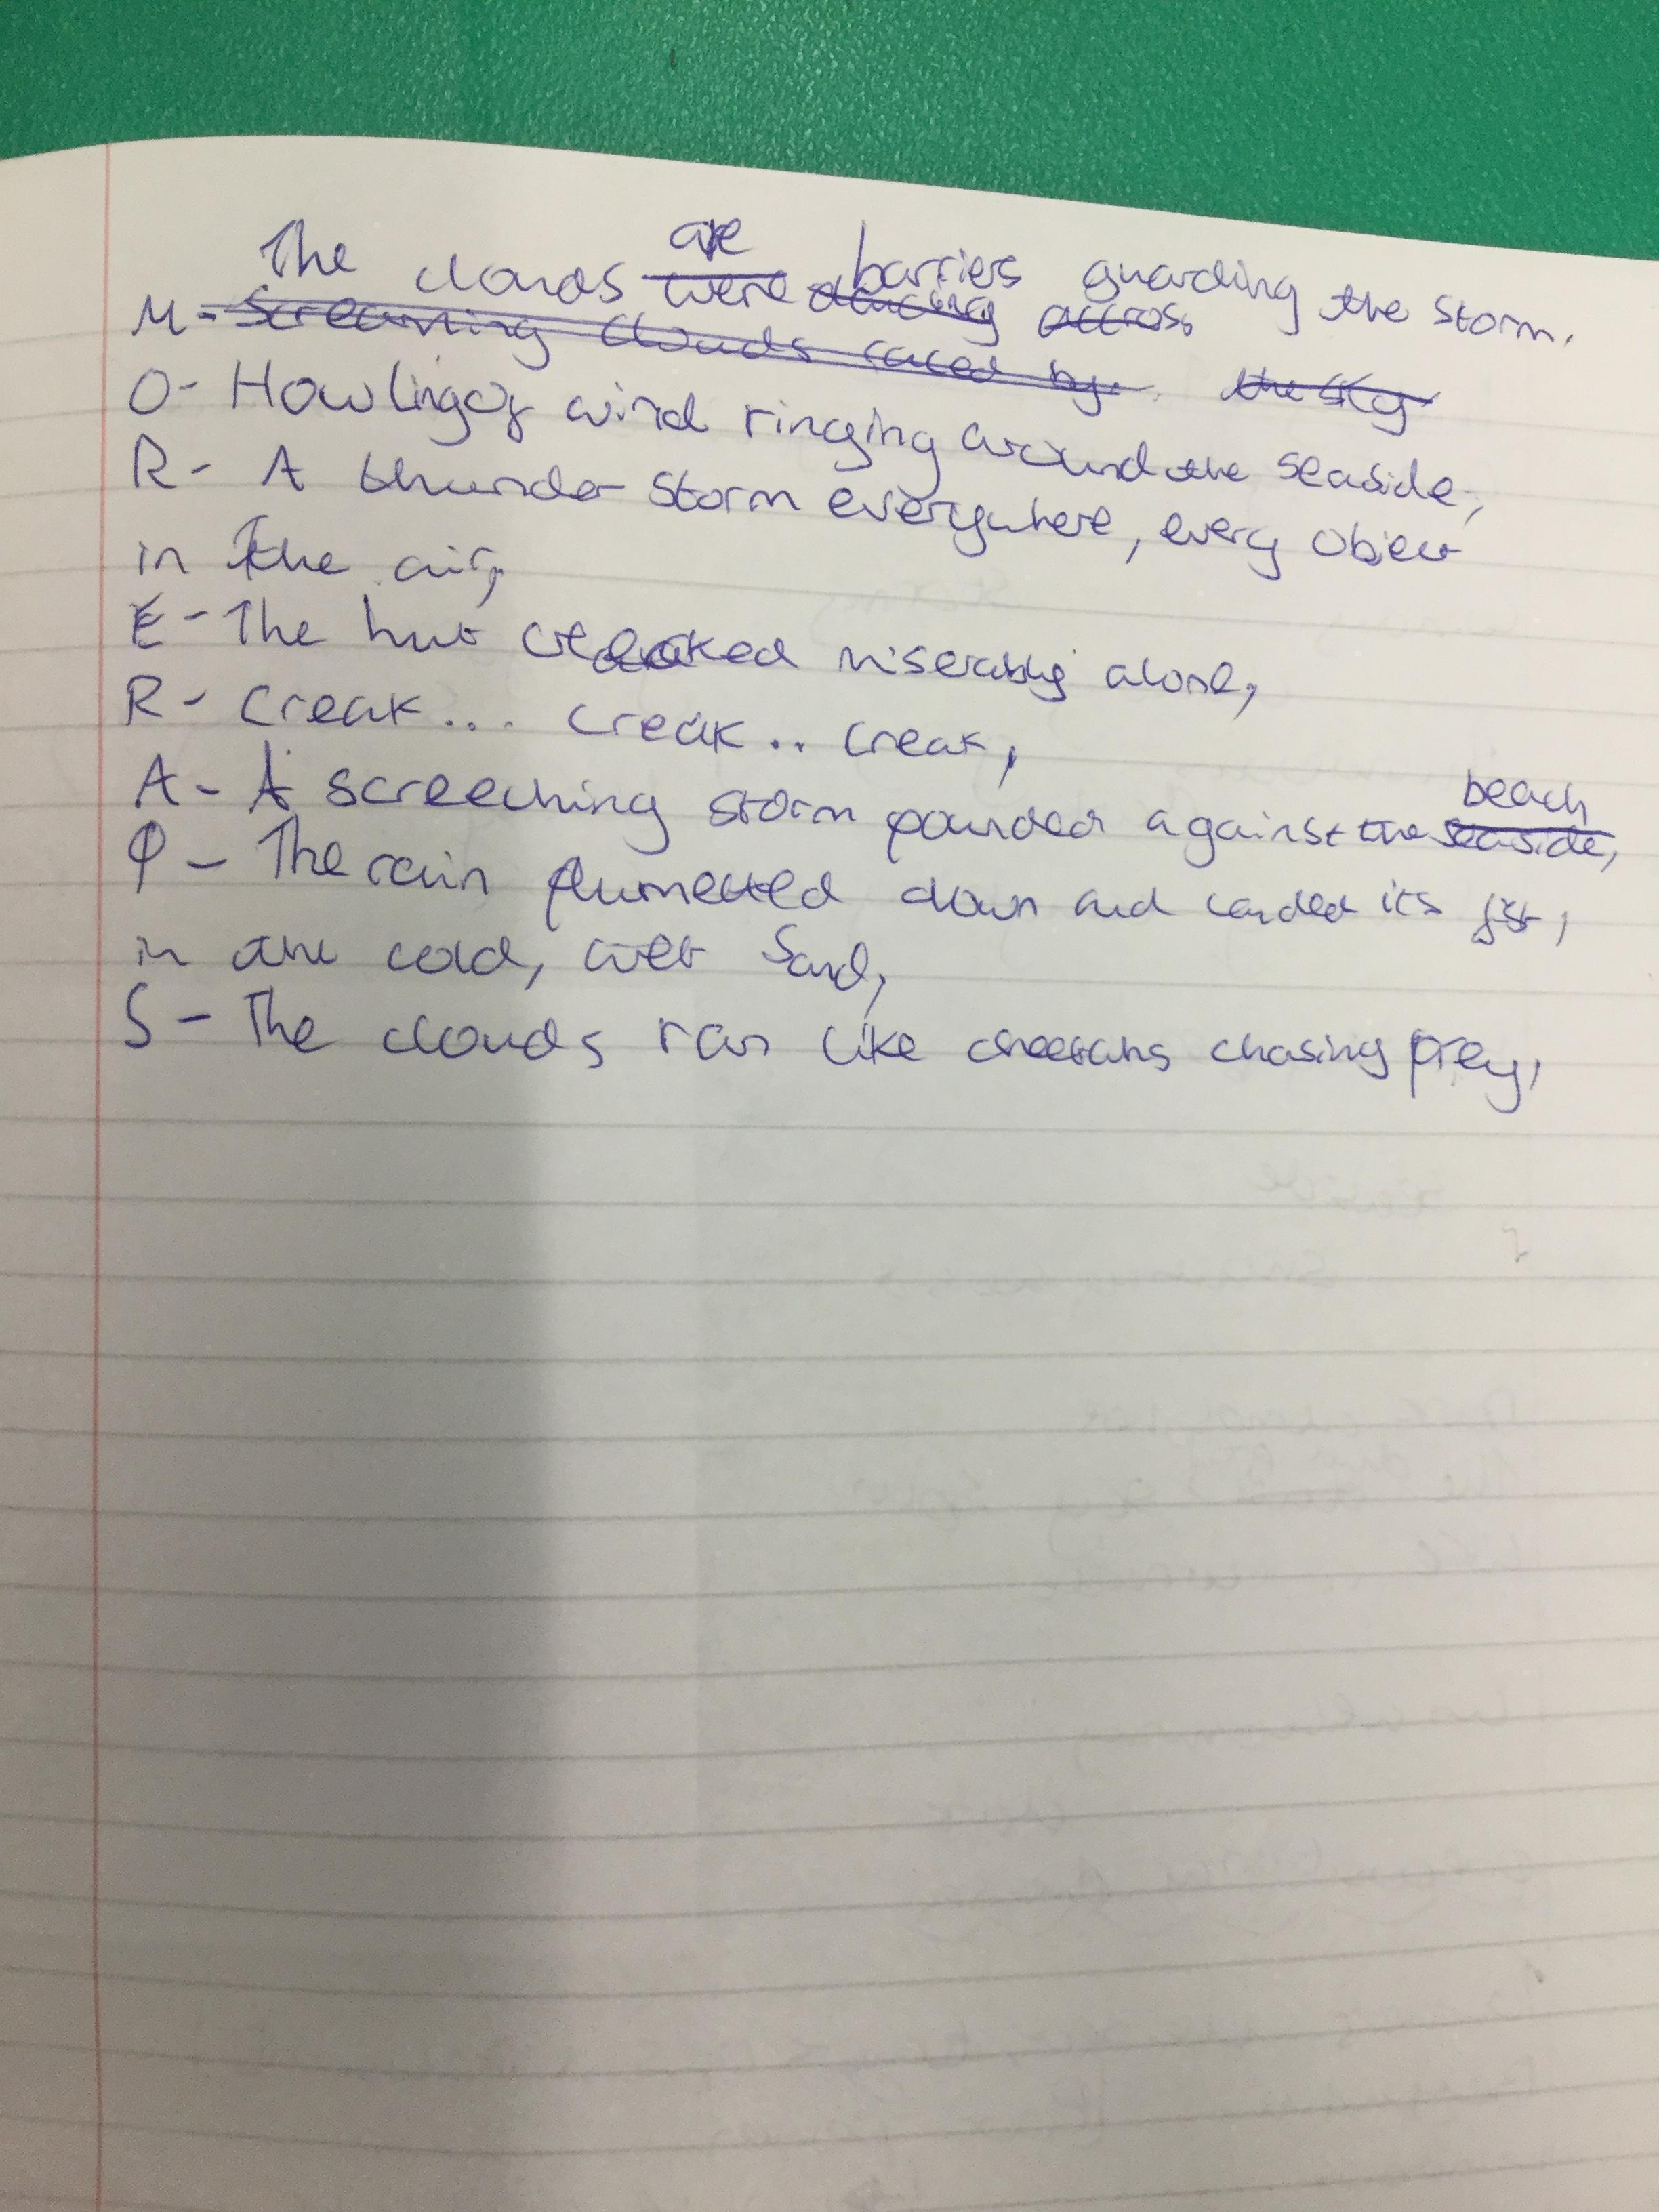 The clouds are barriers guarding the storm.
were dancing accross
M- Screaming clouds raced by. the sky
O- Howling of wind ringing around the seaside,
R- A thunder storm everywhere, every object
in the air,
E- The hut creaked miserably alone,
R- Creak... creak.. creak,
A- A screeching storm pounded against the seaside, beach
P- The rain plumetted down and landed its fist,
in the cold, wet sand,
S- The clouds ran like cheetahs chasing prey,